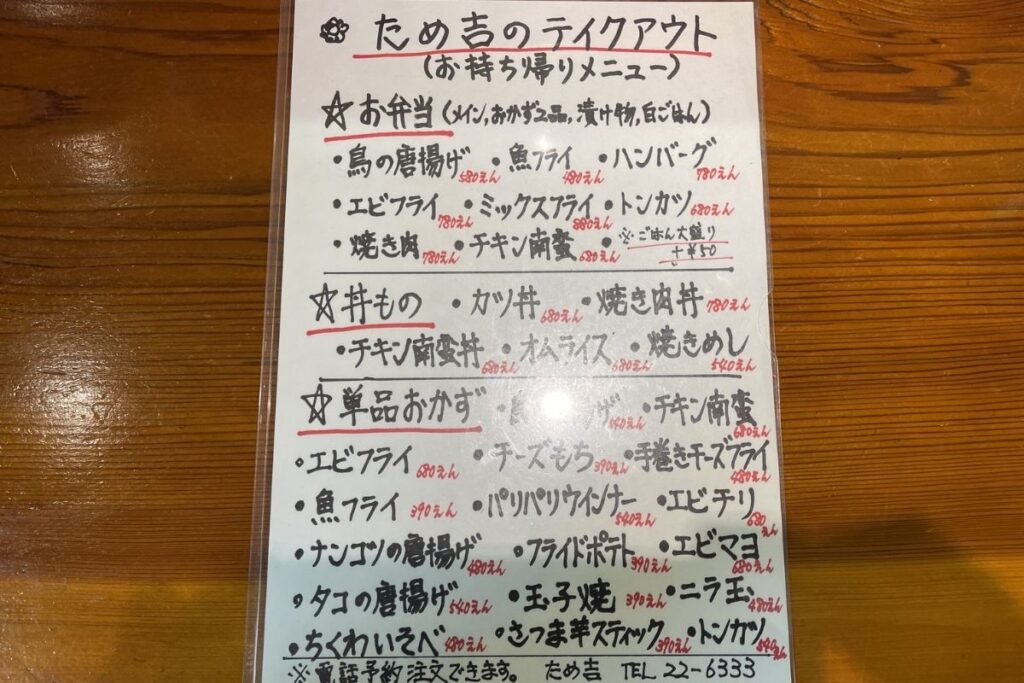 ため吉のテイクアウト
(お持ち帰りメニュー)
☆お弁当(メイン,おかず2品,漬け物,白ごはん)
・鳥の唐揚げ 580えん ・魚フライ 480えん ・ハンバーグ 780えん
・エビフライ 780えん ・ミックスフライ 880えん ・トンカツ 680えん
・焼き肉 780えん ・チキン南蛮 680えん ・※ごはん大盛り
+¥50
☆丼もの ・カツ丼 680えん ・焼き肉丼 780えん
・チキン南蛮丼 680えん ・オムライス 680えん ・焼きめし 540えん
☆単品おかず ・ げ 540えん ・チキン南蛮 680えん
・エビフライ 680えん ・チーズもち 390えん ・手巻きチーズフライ 480えん
・魚フライ 390えん ・パリパリウインナー 540えん ・エビチリ 680えん
・ナンコツの唐揚げ 480えん ・フライドポテト 390えん ・エビマヨ 680えん
・タコの唐揚げ 540えん ・玉子焼 390えん ・ニラ玉 480えん
・ちくわいそべ 480えん ・さつま芋スティック 390えん ・トンカツ 540えん
※電話予約注文できます。 ため吉 TEL 22-6333